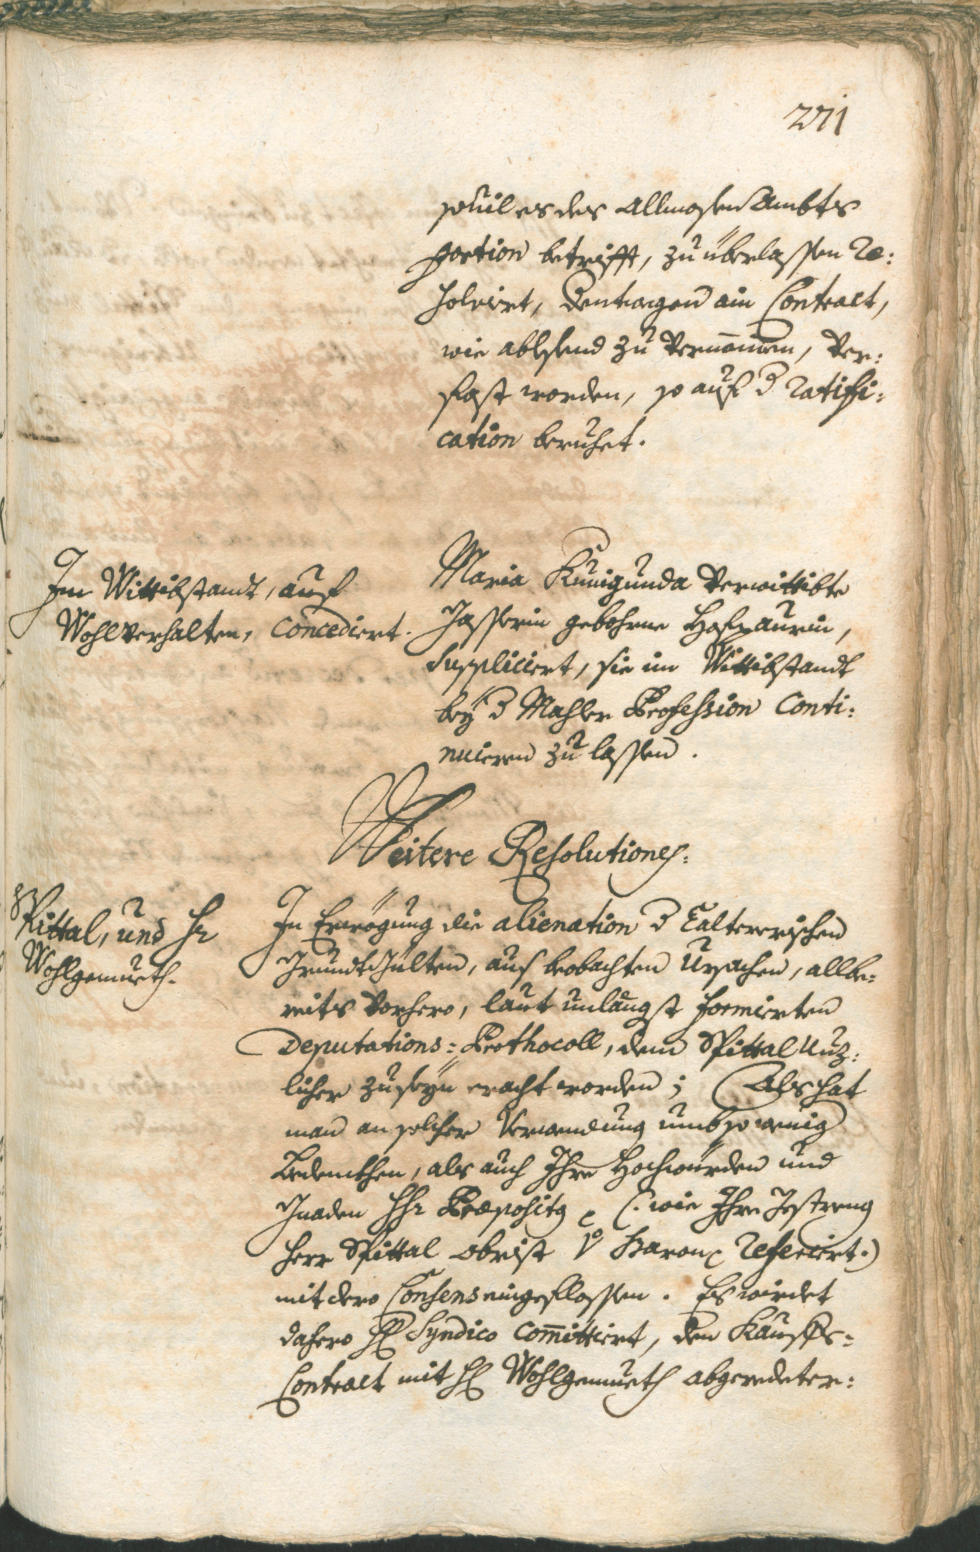 271
souil es des Allmosen Ambts
portion betrifft, zu überlassen Re:
solvirt, dentwegen ain Contract,
wie ablesend zu vernommen, ver:
fast worden, so auf d ratifi:
cation beruhet.
Im Wittibstandt, auf
Wohlverhalten, concediert.
Maria Kunigunda verwittibte
Jasserin gebohrne Hofmaurin,
Suppliciert, sie im Wittibstandt
bey d Mahler Profession conti:
nuieren zu lassen.
Weitere Resolutiones:
Spittal, und Hr
Wohlgemueth.
In Erwögung die alienation d Caltererischen
Grundt Gülten, aus beobachten Ursachen, allbe:
reits vorhero, laut unlängst formierten
Deputations: Prothocoll, dem Spittal Nuz:
licher zu seyn eracht worden; Als hat
man an solcher Verwendung umb so wenig
Bedenkhen, als auch Ihre Hochwürden und
Gnaden HHr Præpositg (: wie Ihre Gestreng
Herr Spittal obrist V Baron referiert:)
mit dero Consens eingeflossen. Es wirdet
dahero H Syndico committiert, den Kauffs:
Contract mit H Wohlgemueth abgeredeter: